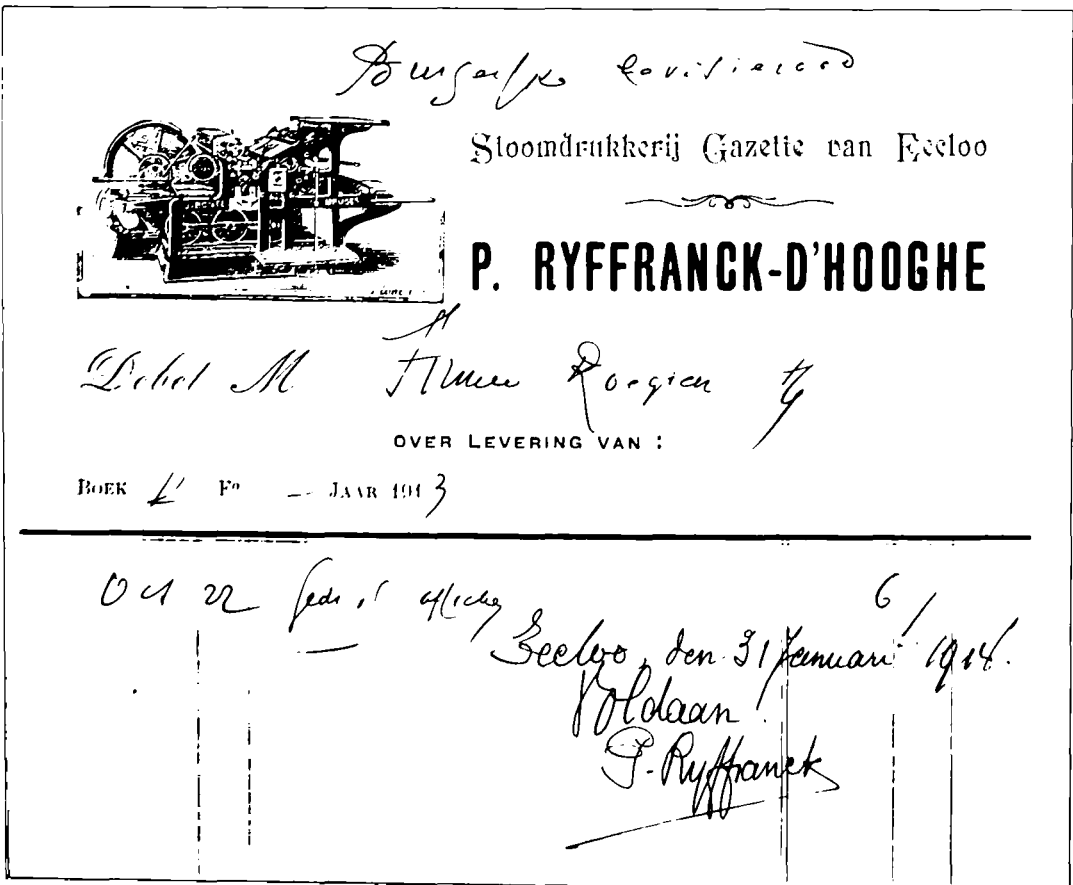 Stoomdrukkerij Gazette van Eecloo
P. RYFFRANCK-D'HOOGHE
Debet M
OVER LEVERING VAN :
BOEK Fo JAAR 1913
Oct 22 6
Eecloo, den 31 Januari 1914.
Voldaan!
P. Ryffranck